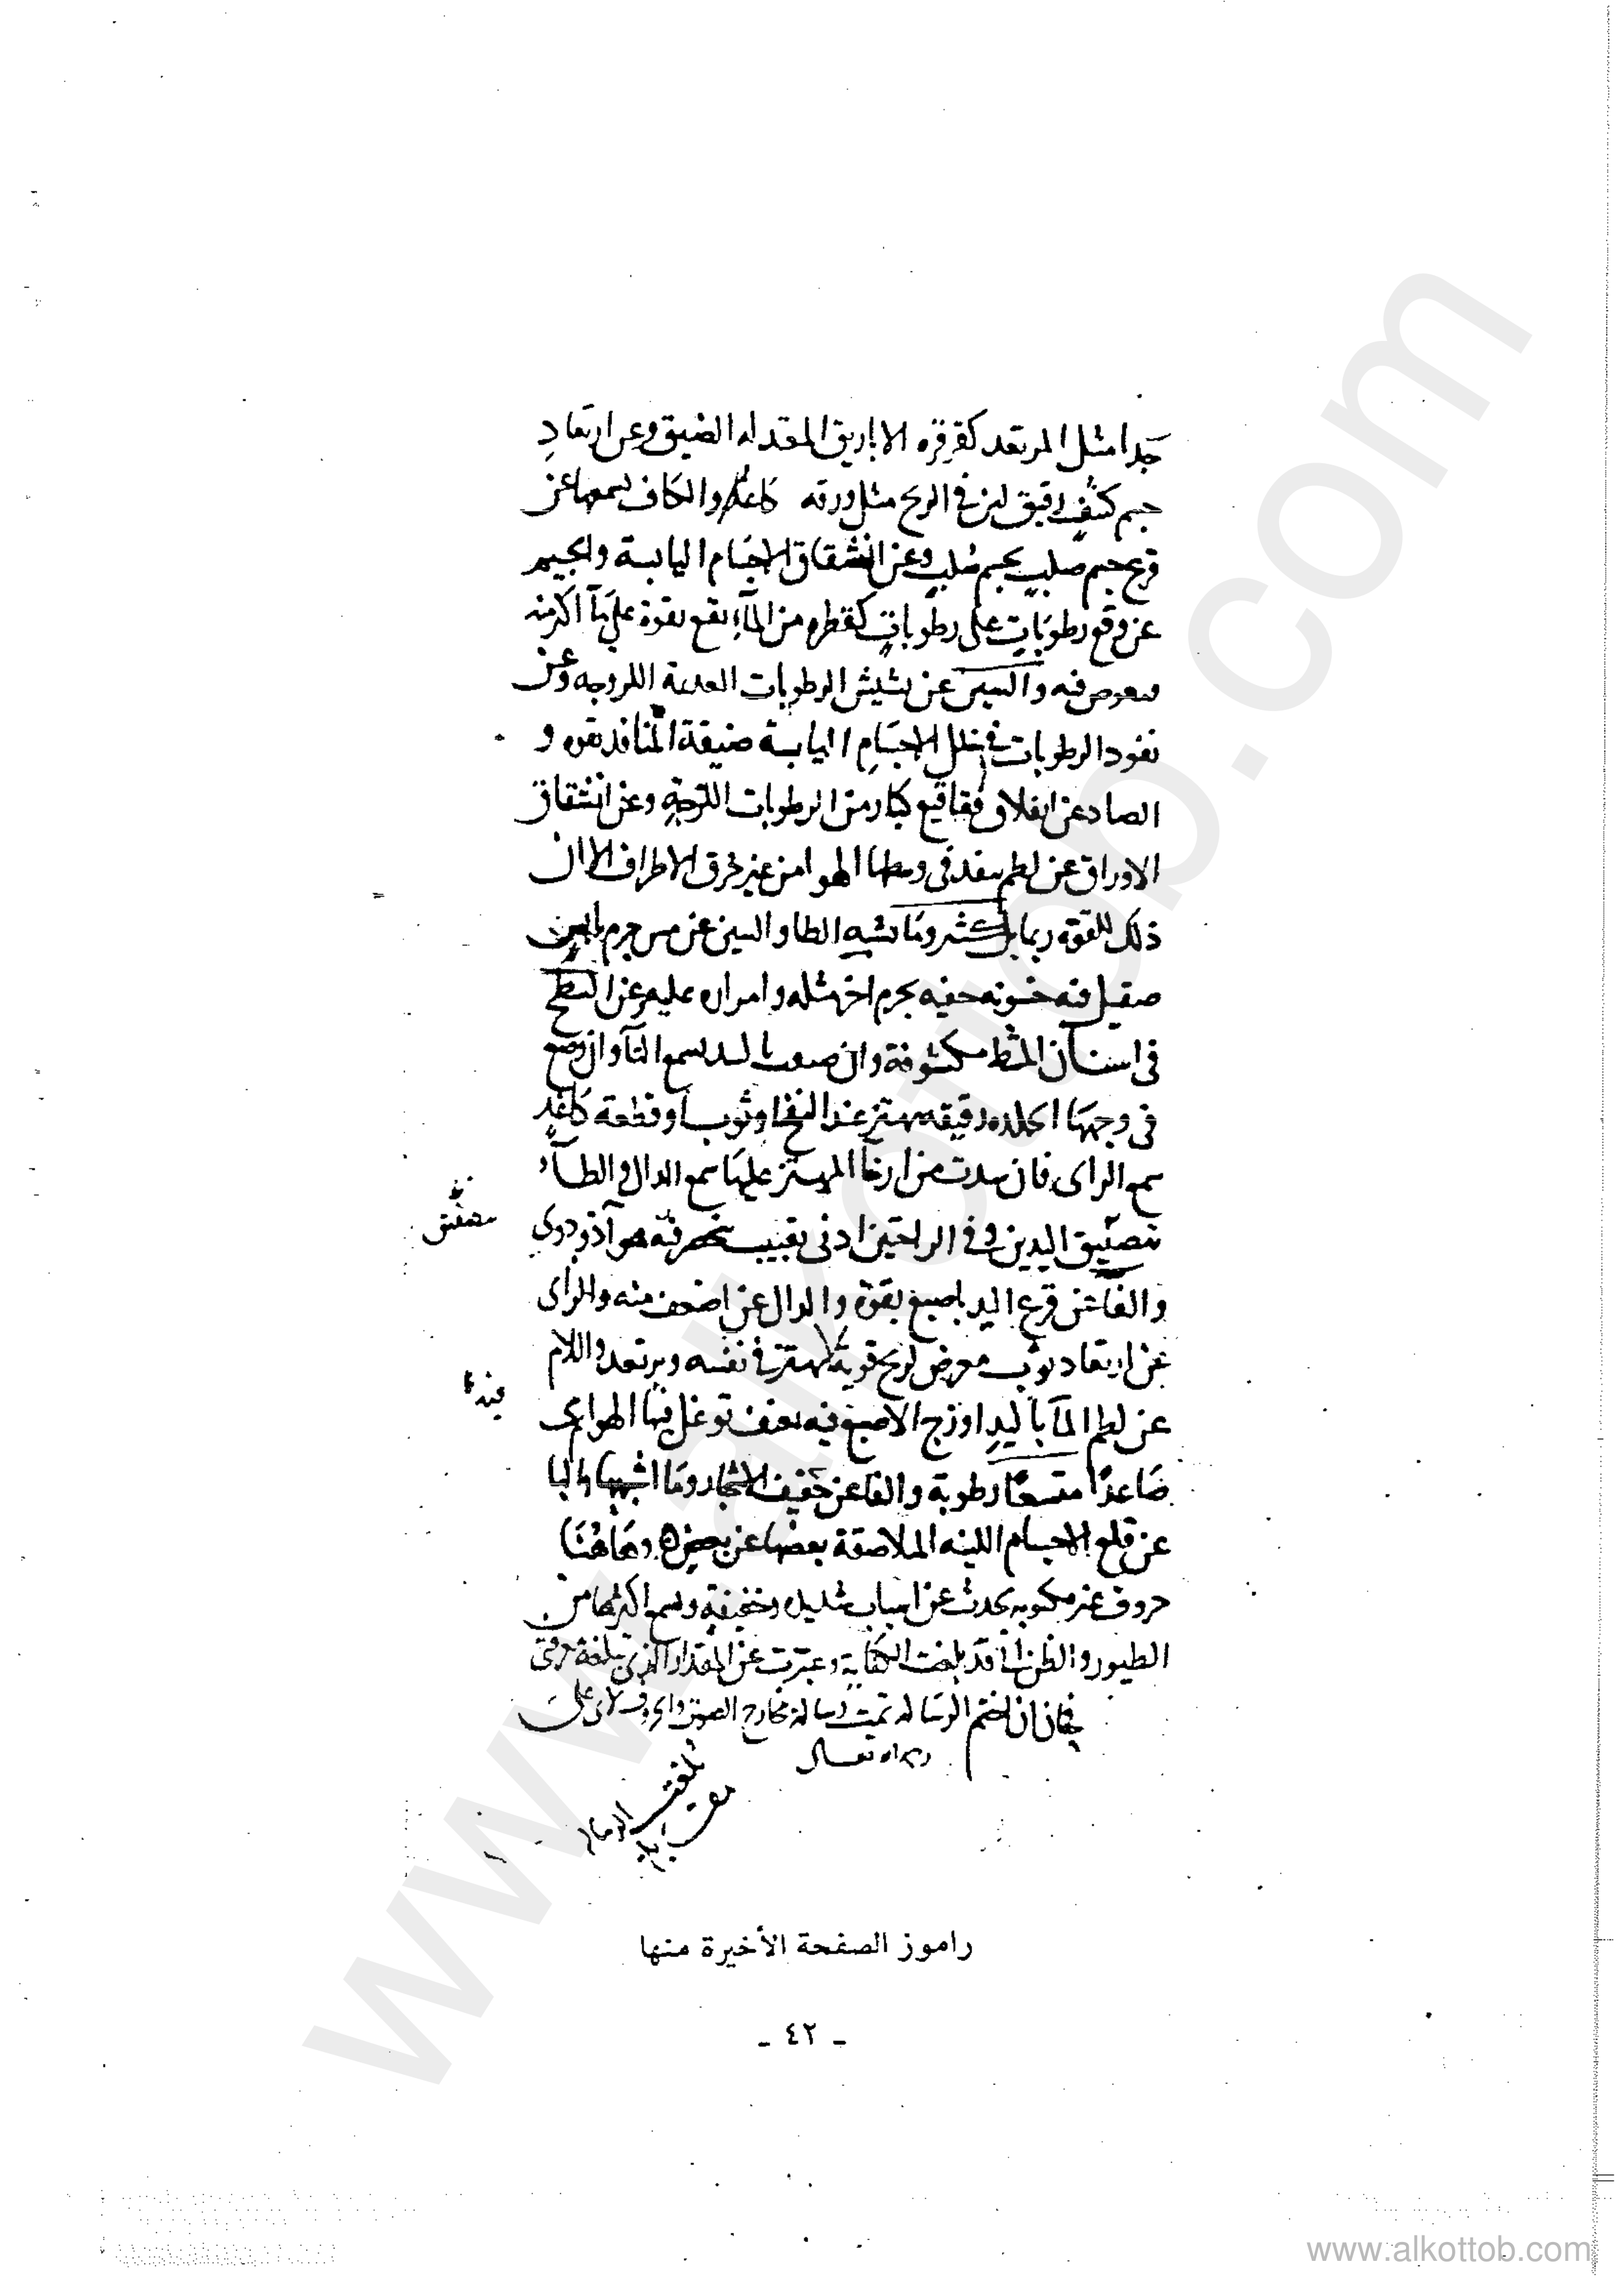 جدا مثل المرتعد كقرقره الاباريق المقدله الضيق وعن ارتعاد
جسم كثيف رقيق لين في الريح مثل ورقه كاغد والكاف تسمعها عن
قرع جسم صلب بجسم صلب وعن انشقاق الاجسام اليابسة والجيم
عن وقع رطوبات على رطوبات كقطره من الماء تقع بقوة على ماء اكثر منه
فيغوص فيه والسين عن نشيش الرطوبات العديمة اللزوجه وعن
نفوذ الرطوبات في خلل الاجسام اليابسة ضيقة المنافذ بقوه و
الصاد عن انفلاق فقاقيع كبار من الرطوبات اللزجة وعن انشقاق
الاوراق عن لطم ينفذ في وسطها الهوا من غير خرق الاطراف الا ان
ذلك للقوة ربما كثر وما يشبه الطا والسين عن مس جرم يابس
صقيل فيه خشونه خفيه بجرم اخر مثله وامراره عليه وعن النفخ
في اسنان المشط مكشوفة وان صعب باليد يسمع الثاء وان وضع
في وجهها جلده رقيقه تهتز عند النفخ او ثوب او قطعة كاغد
سمع الزاي فان سدت من ارخاء المهتز عليها سمع الدال والطاء
بتصفيق اليدين وفي الراحتين ادنى تقبيب ينحصر فيه هواء ذو دوي
والقا عن قرع اليد باصبع بقوة والدال عن اضعف منه والراي
عن ارتعاد ثوب معرض لريح قوية لا يهتز في نفسه ويرتعد واللام
عن لطم الماء باليد او زج الاصبع فيه بعنف توغل فيها الهواء
صاعدا متسعا رطوبة والفا عن حفيف الاشجار وما اشبهها والبا
عن قلع الاجسام اللينه الملاصقة بعضها عن بعض وهاهنا
حروف غير مكتوبه تحدث عن اسباب ثقيله وخفيفة ويسمع اكثرها من
الطيور والظن اني قد بلغت الكفاية وعبرت عن المقدار الذي تبلغه معرفتي
فحان ان اختم الرسالة تمت رسالة مخارج الصوت والحروف لابي علي
رحمه الله تعالى
تصفيق
راموز الصفحة الأخيرة منها
- ٤٢ -
www.alkottob.com
www.alkottob.com